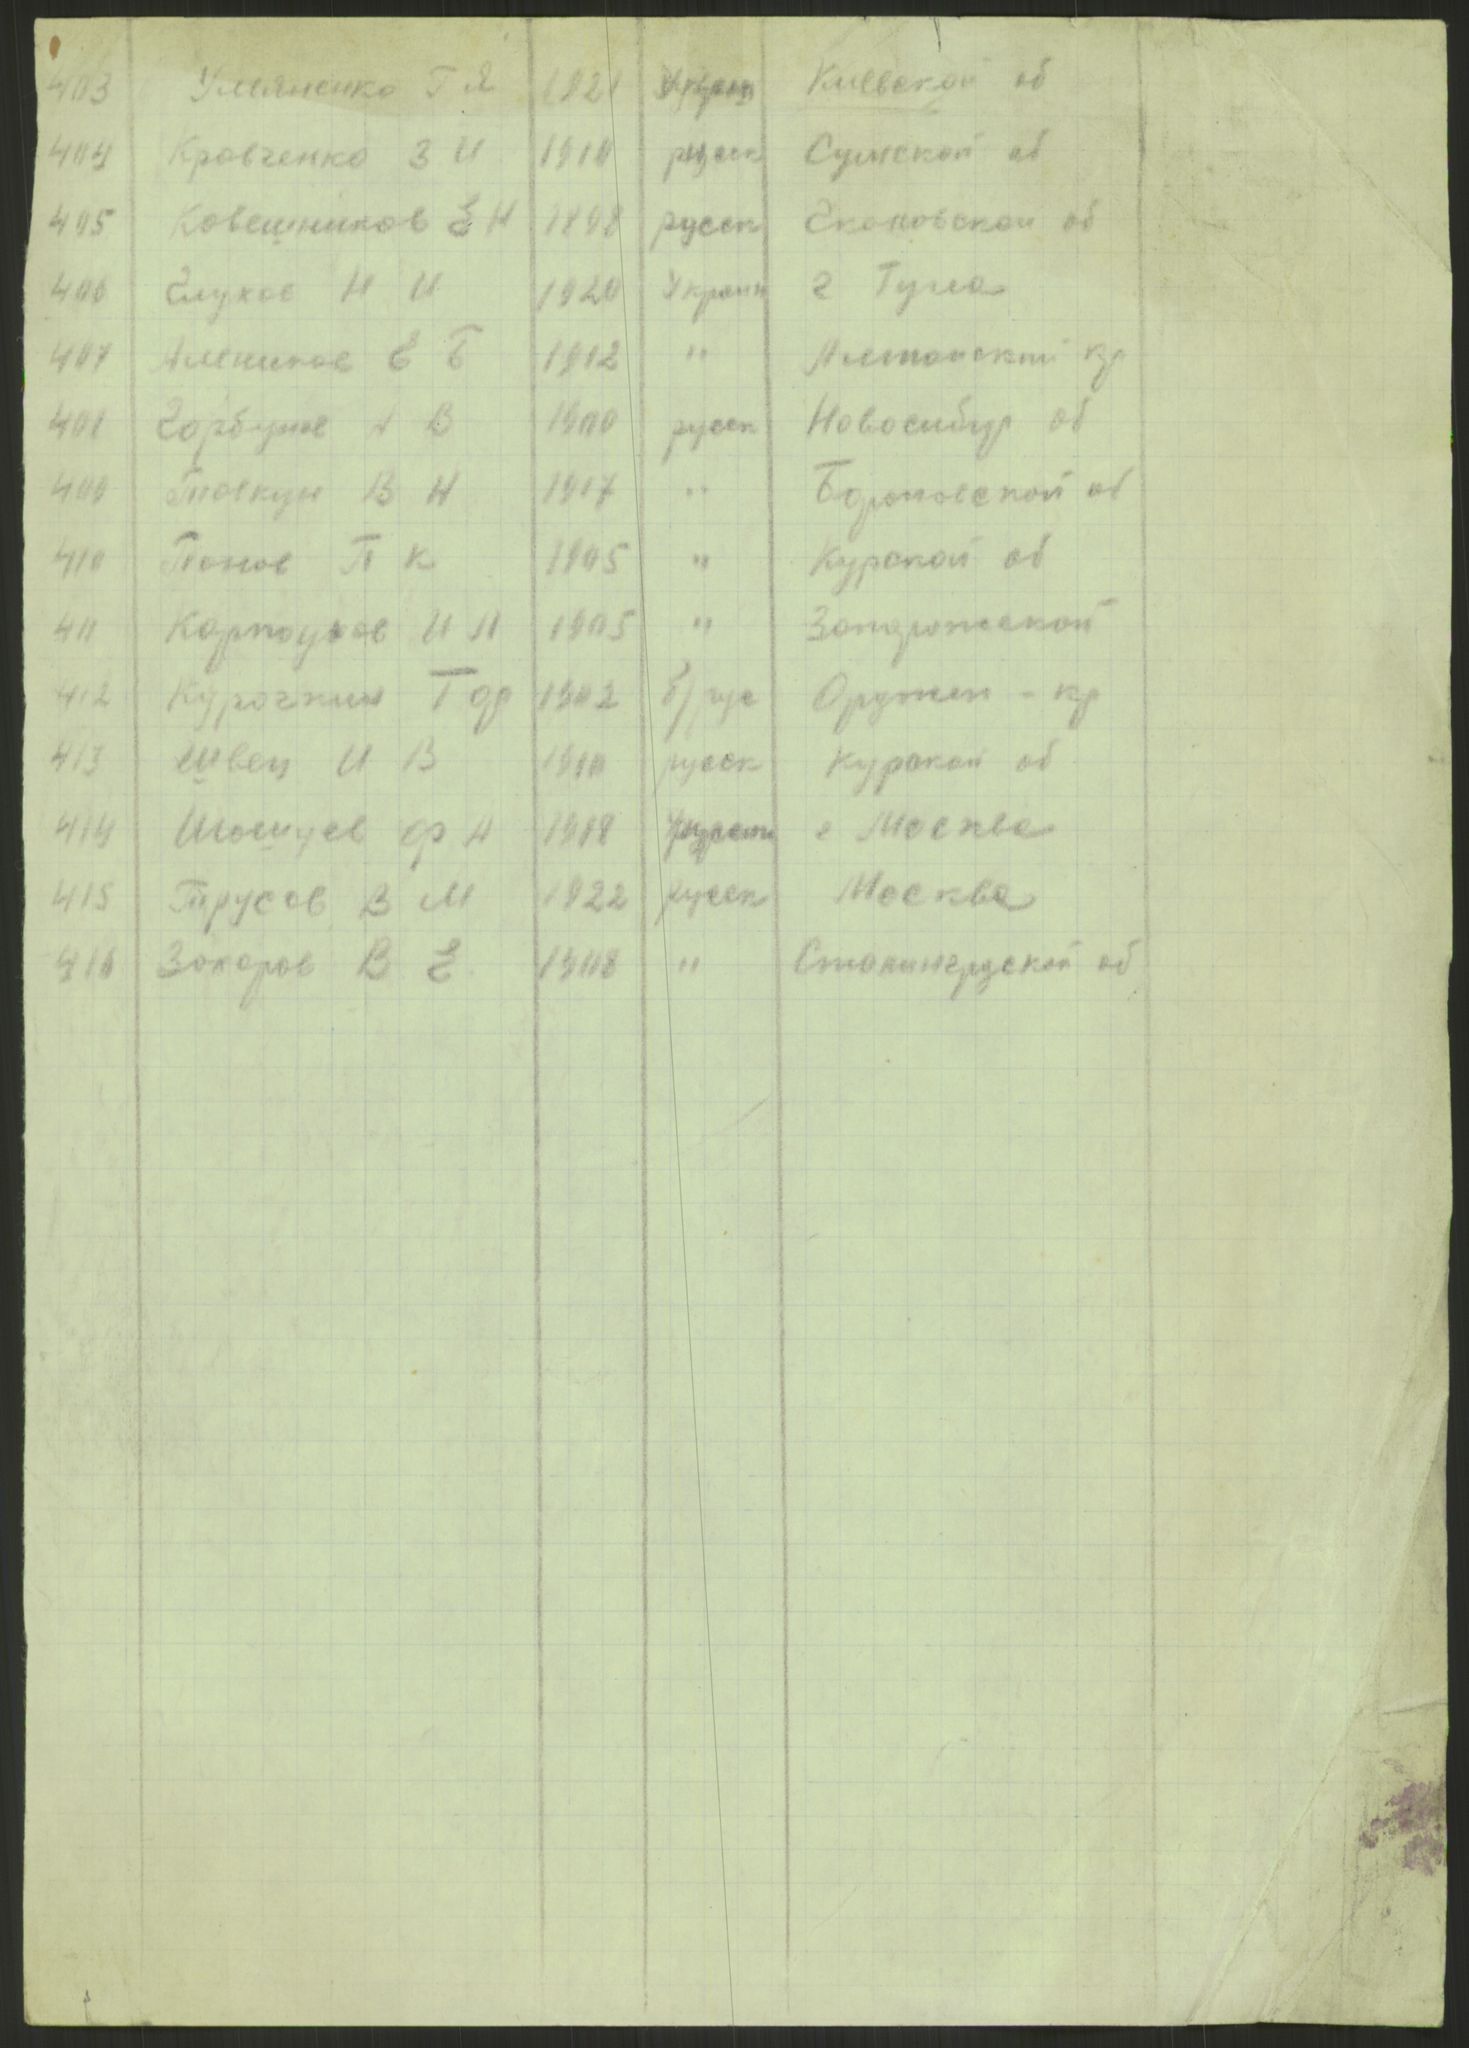 403 Ульяненко Г Я 1921 Украин Киевской об
404 Кравченко З И 1910 русск Сумской об
405 Ковешников Е Н 1898 русск об
406 Глухов Н И 1920 Украин г Тула
407 Е Б 1912 " Алтайский кр
408 Горбунов А В 1900 русск Новосибир об
409 В Н 1917 " об
410 Попов П К 1905 " Курской об
411 Карпоухов И П 1905 " Запорожской
412 Курочкин Г Ф 1902 б/рус Орджон - кр
413 Швец И В 1910 русск Курской об
414 Ф А 1918 Украин г Москва
415 Трусов В М 1922 русск Москва
416 Захаров В Е 1908 " Сталинградской об